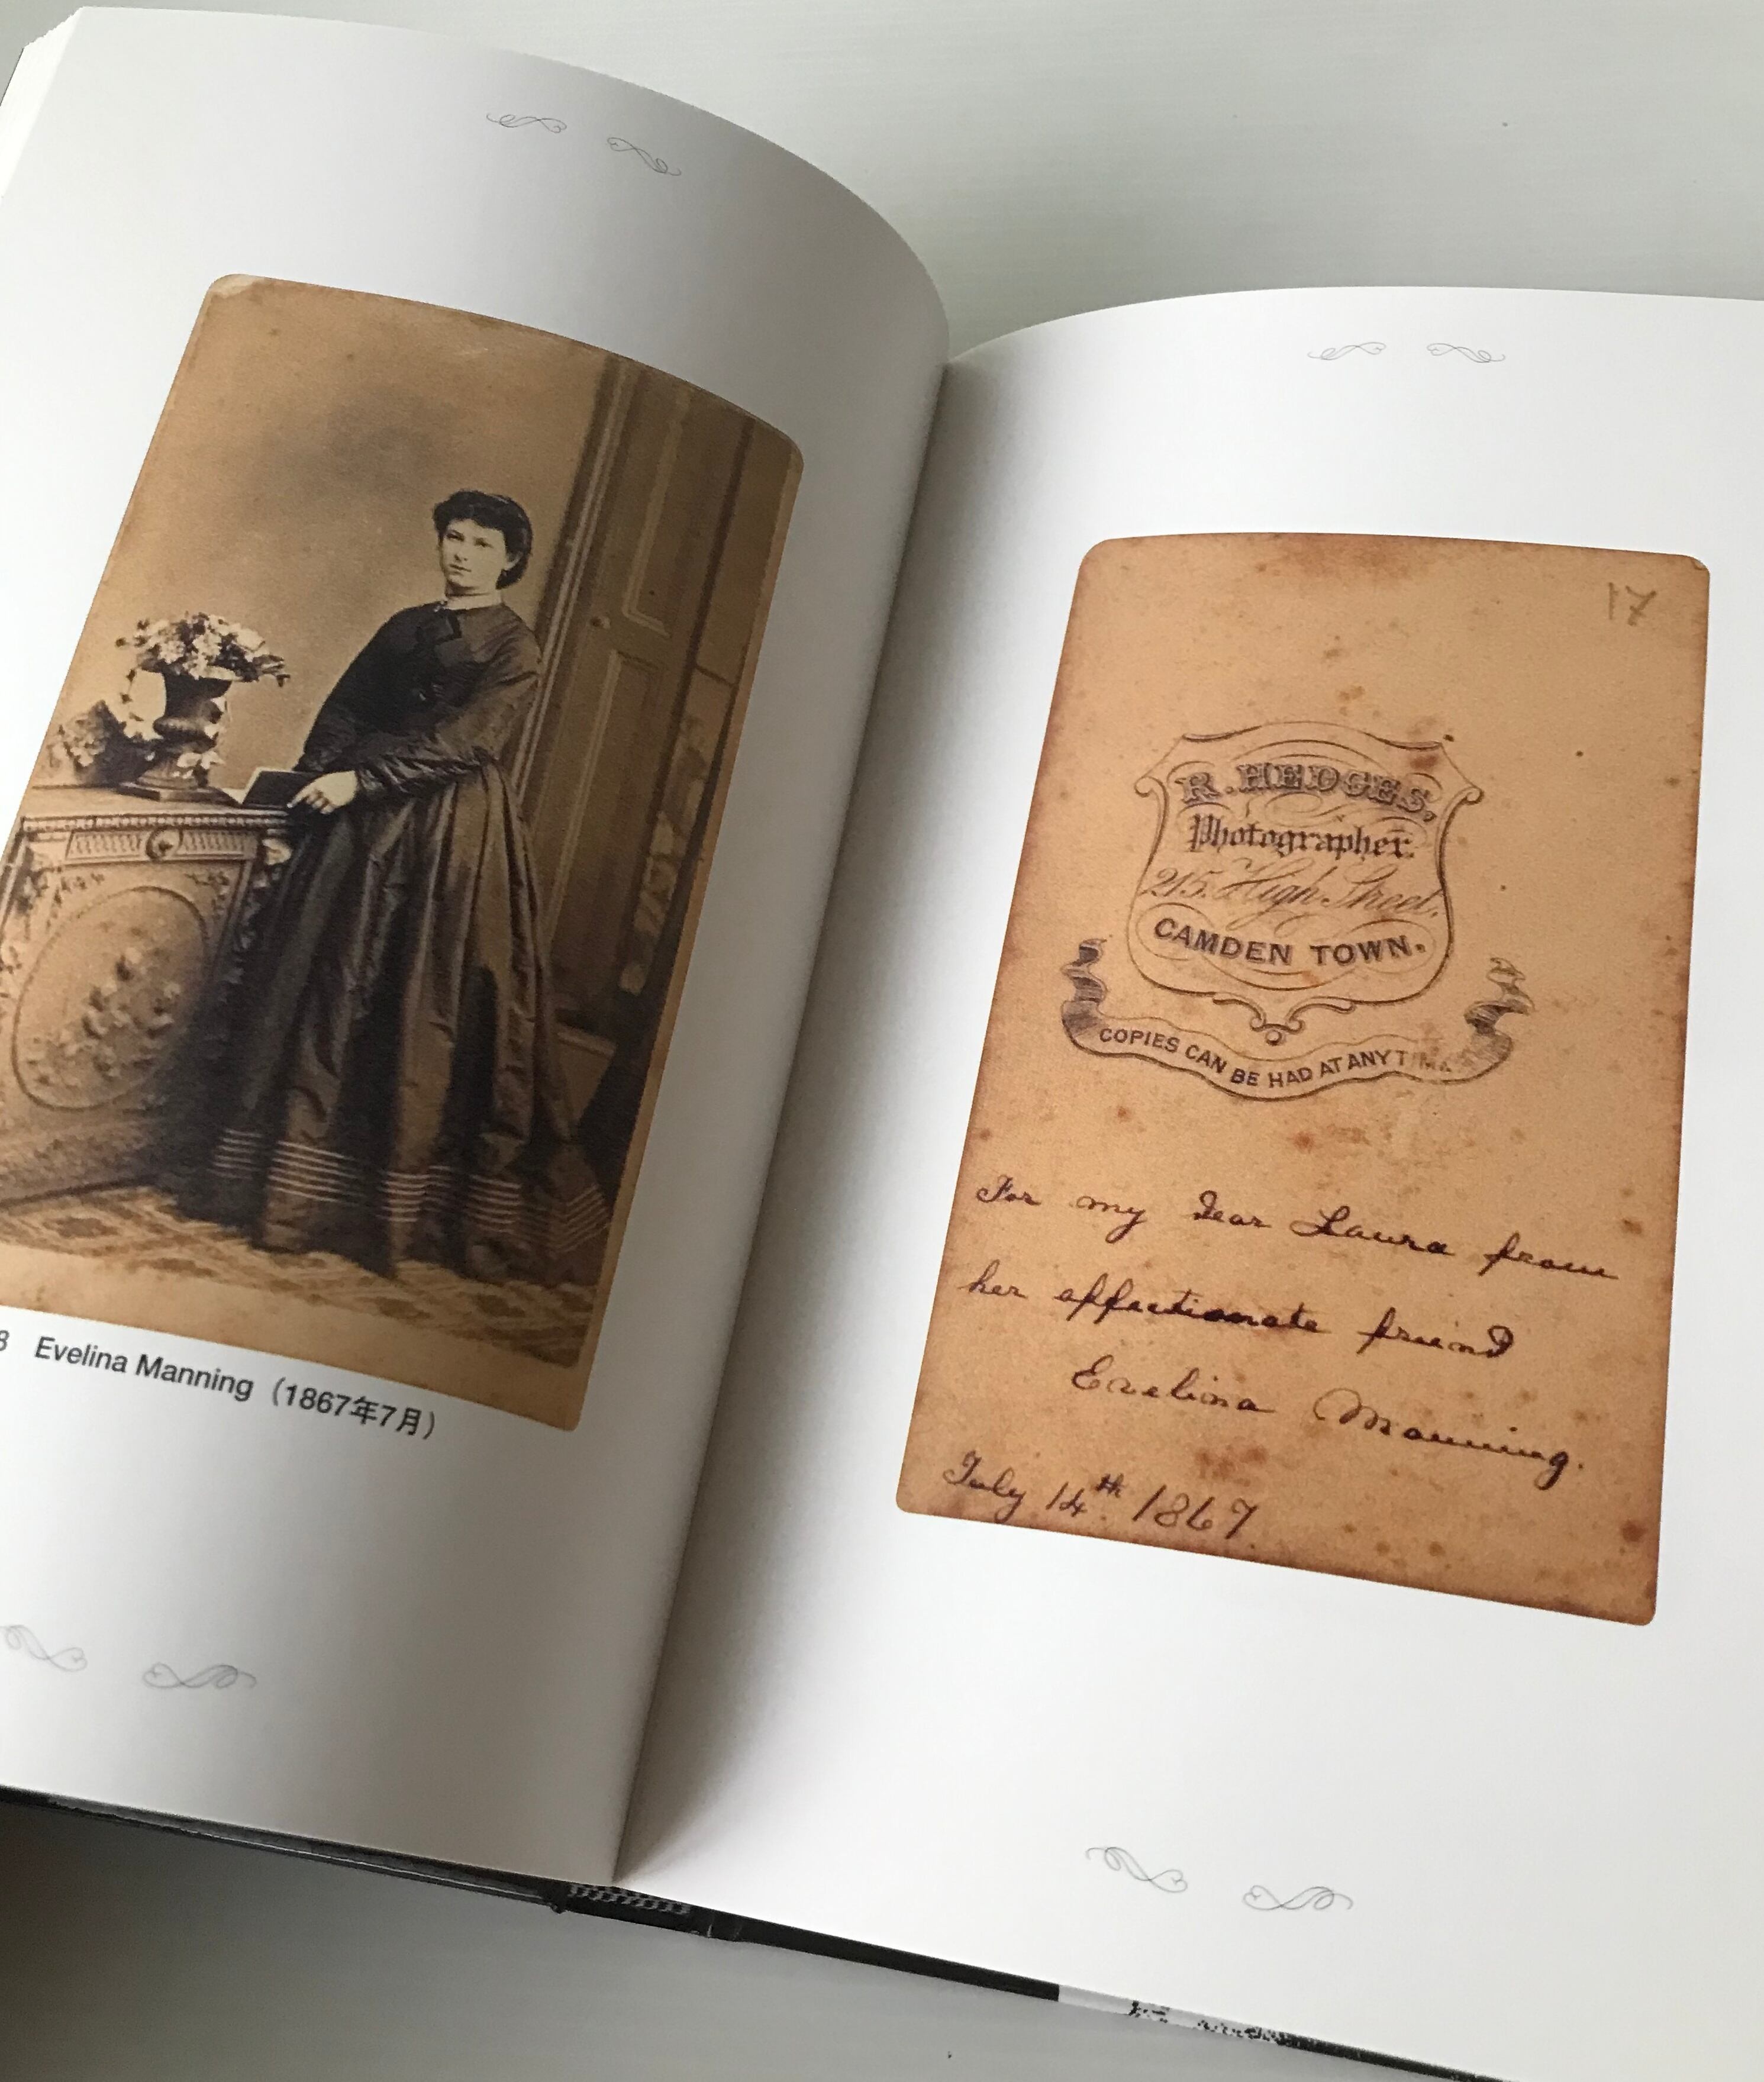 3 Evelina Manning (1867年7月)
17
R. HEDGES,
Photographer.
215. High Street,
CAMDEN TOWN.
COPIES CAN BE HAD AT ANY
For my Dear Laura from
her affectionate friend
Evelina Manning.
July 14th 1867